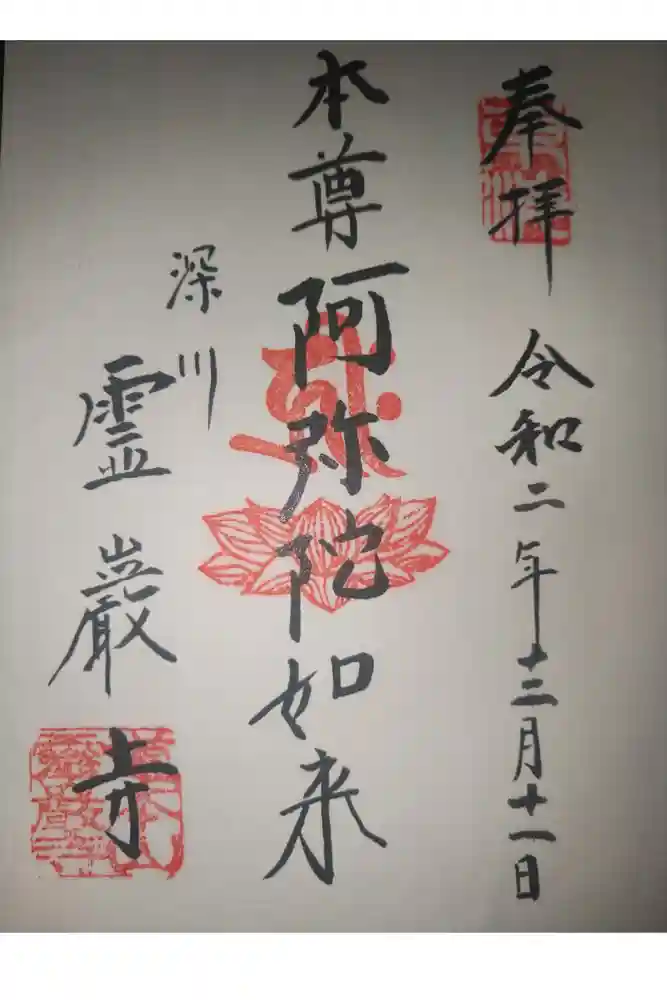 奉拝 令和二年十二月十一日
本尊 阿弥陀如来
深川
霊巌寺